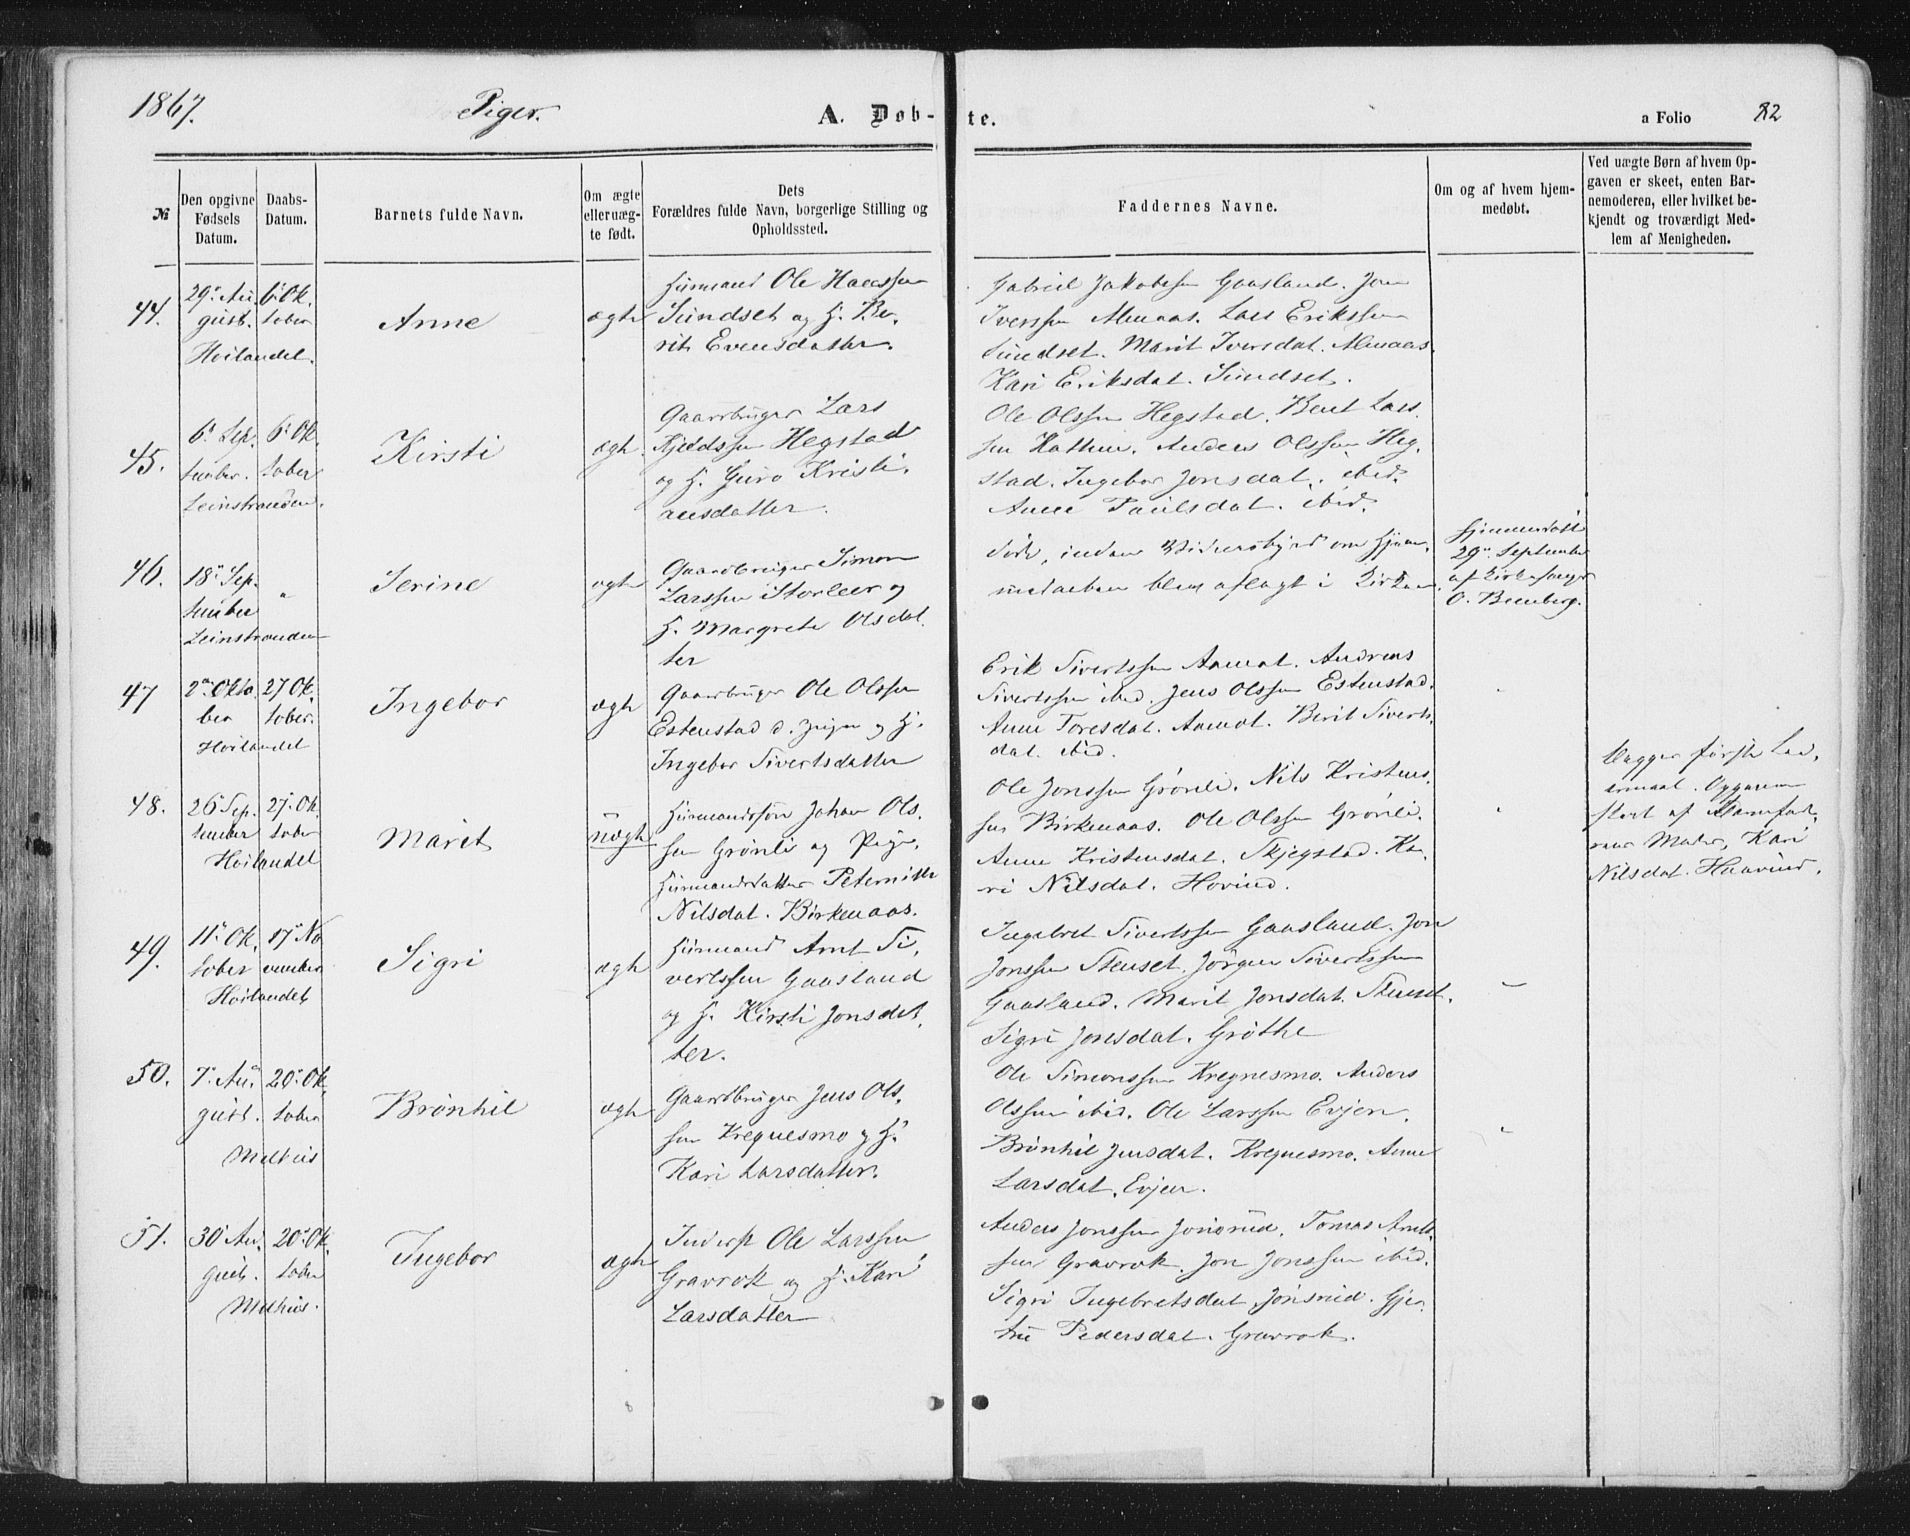 1867. Piger. A. Døb- te. a Folio 82
№
Den opgivne Fødsels Datum.
Daabs- Datum.
Barnets fulde Navn.
Om ægte eller uæg- te født.
Dets Forældres fulde Navn, borgerlige Stilling og Opholdssted.
Faddernes Navne.
Om og af hvem hjem- medøbt.
Ved uægte Børn af hvem Op- gaven er skeet, enten Bar- nemoderen, eller hvilket be- kjendt og troværdigt Med- lem af Menigheden.
44.
29. Au-
gust.
6. Ok.
tober
Hoilandet.
Anne
ægte
Husmand Ole
Sundset og H. Be-
rit Evensdatter.
Gabriel Jakobsen Gaasland. Jon
Iverssen Almaas. Lars Erikssen
Sundset. Marit Iversdat. Almaas.
Kari Eriksdat. Sundset.
45.
6. Sep.
tember.
6. Ok
tober
Leinstranden.
Kirsti
ægte
Gaardbruger Lars
Kjeldssen Hegstad
og H. Guro Kristi-
ansdatter.
Ole Olssen Hegstad. Bent Lars-
sen Anders Olssen Heg-
stad. Ingebor Jonsdat. ibid.
Anne Paulsdat. ibid.
46.
18. Sep-
tember
"
Leinstranden
Serine
ægte
Gaardbruger Simon
Larssen Storler og
H. Margrete Olsdat-
ter
Død, inden Vidnesbyrd om Hjem-
medaaben blev aflagt i Kirken.
Hjemmedøbt
29. September
af Kirkesanger
O.
47
2. Okto.
ber
27 Ok.
tober.
Hoilandet
Ingebor
ægte
Gaardbruger Ole Olssen
Estenstad d. yngre og H.
Ingebor Sivertsdatter
Erik Sivertssen Aamot. Andreas
Sivertssen ibid. Jens Olssen Estenstad.
Anne Toresdat. Aamot. Berit Siverts-
dat. ibid.
48.
26 Sep.
tember
27. Ok.
tober
Hoilandet
Marit
uægte
Husmandssøn Johan Ols-
sen Grønli og Pige,
Husmandsdatter Peternille
Nilsdat. Birkenaas.
Ole Jonssen Grønli. Nils Kristens-
sen Birkenaas. Ole Olssen Grønli.
Anne Kristensdat. Skjegstad. Ka-
ri Nilsdat. Hovind.
Begges første Lei-
ermaal. Opgaven
skeet af Barnefad-
rens Moder, Kari
Nilsdat.
49.
11. Ok.
tober
17. No
vember
Hoilandet
Sigri
ægte
Husmand Arnt Si-
vertssen Gaasland
og H. Kirsti Jonsdat-
ter.
Ingebret Sivertssen Gaasland. Jon
Jonssen Stenset. Jörgen Sivertssen
Gaasland. Marit Jonsdat. Stenset.
Sigri Jonsdat. Grøthe
50.
7. Au-
gust.
20. Ok.
tober
Melhus
Brønhil
ægte
Gaardbruger Jens Ols-
sen Kregnesmo og H.
Kari Larsdatter.
Ole Simonssen Kregnesmo. Anders
Olssen ibid. Ole Larssen Evjen.
Brönhil Jensdat. Kregnesmo. Anne
Larsdat. Evjen.
51.
30 Au-
gust.
20. Ok.
tober
Melhus.
Ingebor
ægte
Inderst Ole Larssen
Gravrok og H. Kari
Larsdatter
Anders Jonssen Jonsrud. Tomas Arnts-
sen Gravrok. Jon Jonssen ibid.
Sigri Ingebretsdat. Jonsrud. Gjer-
tru Pedersdat. Gravrok.